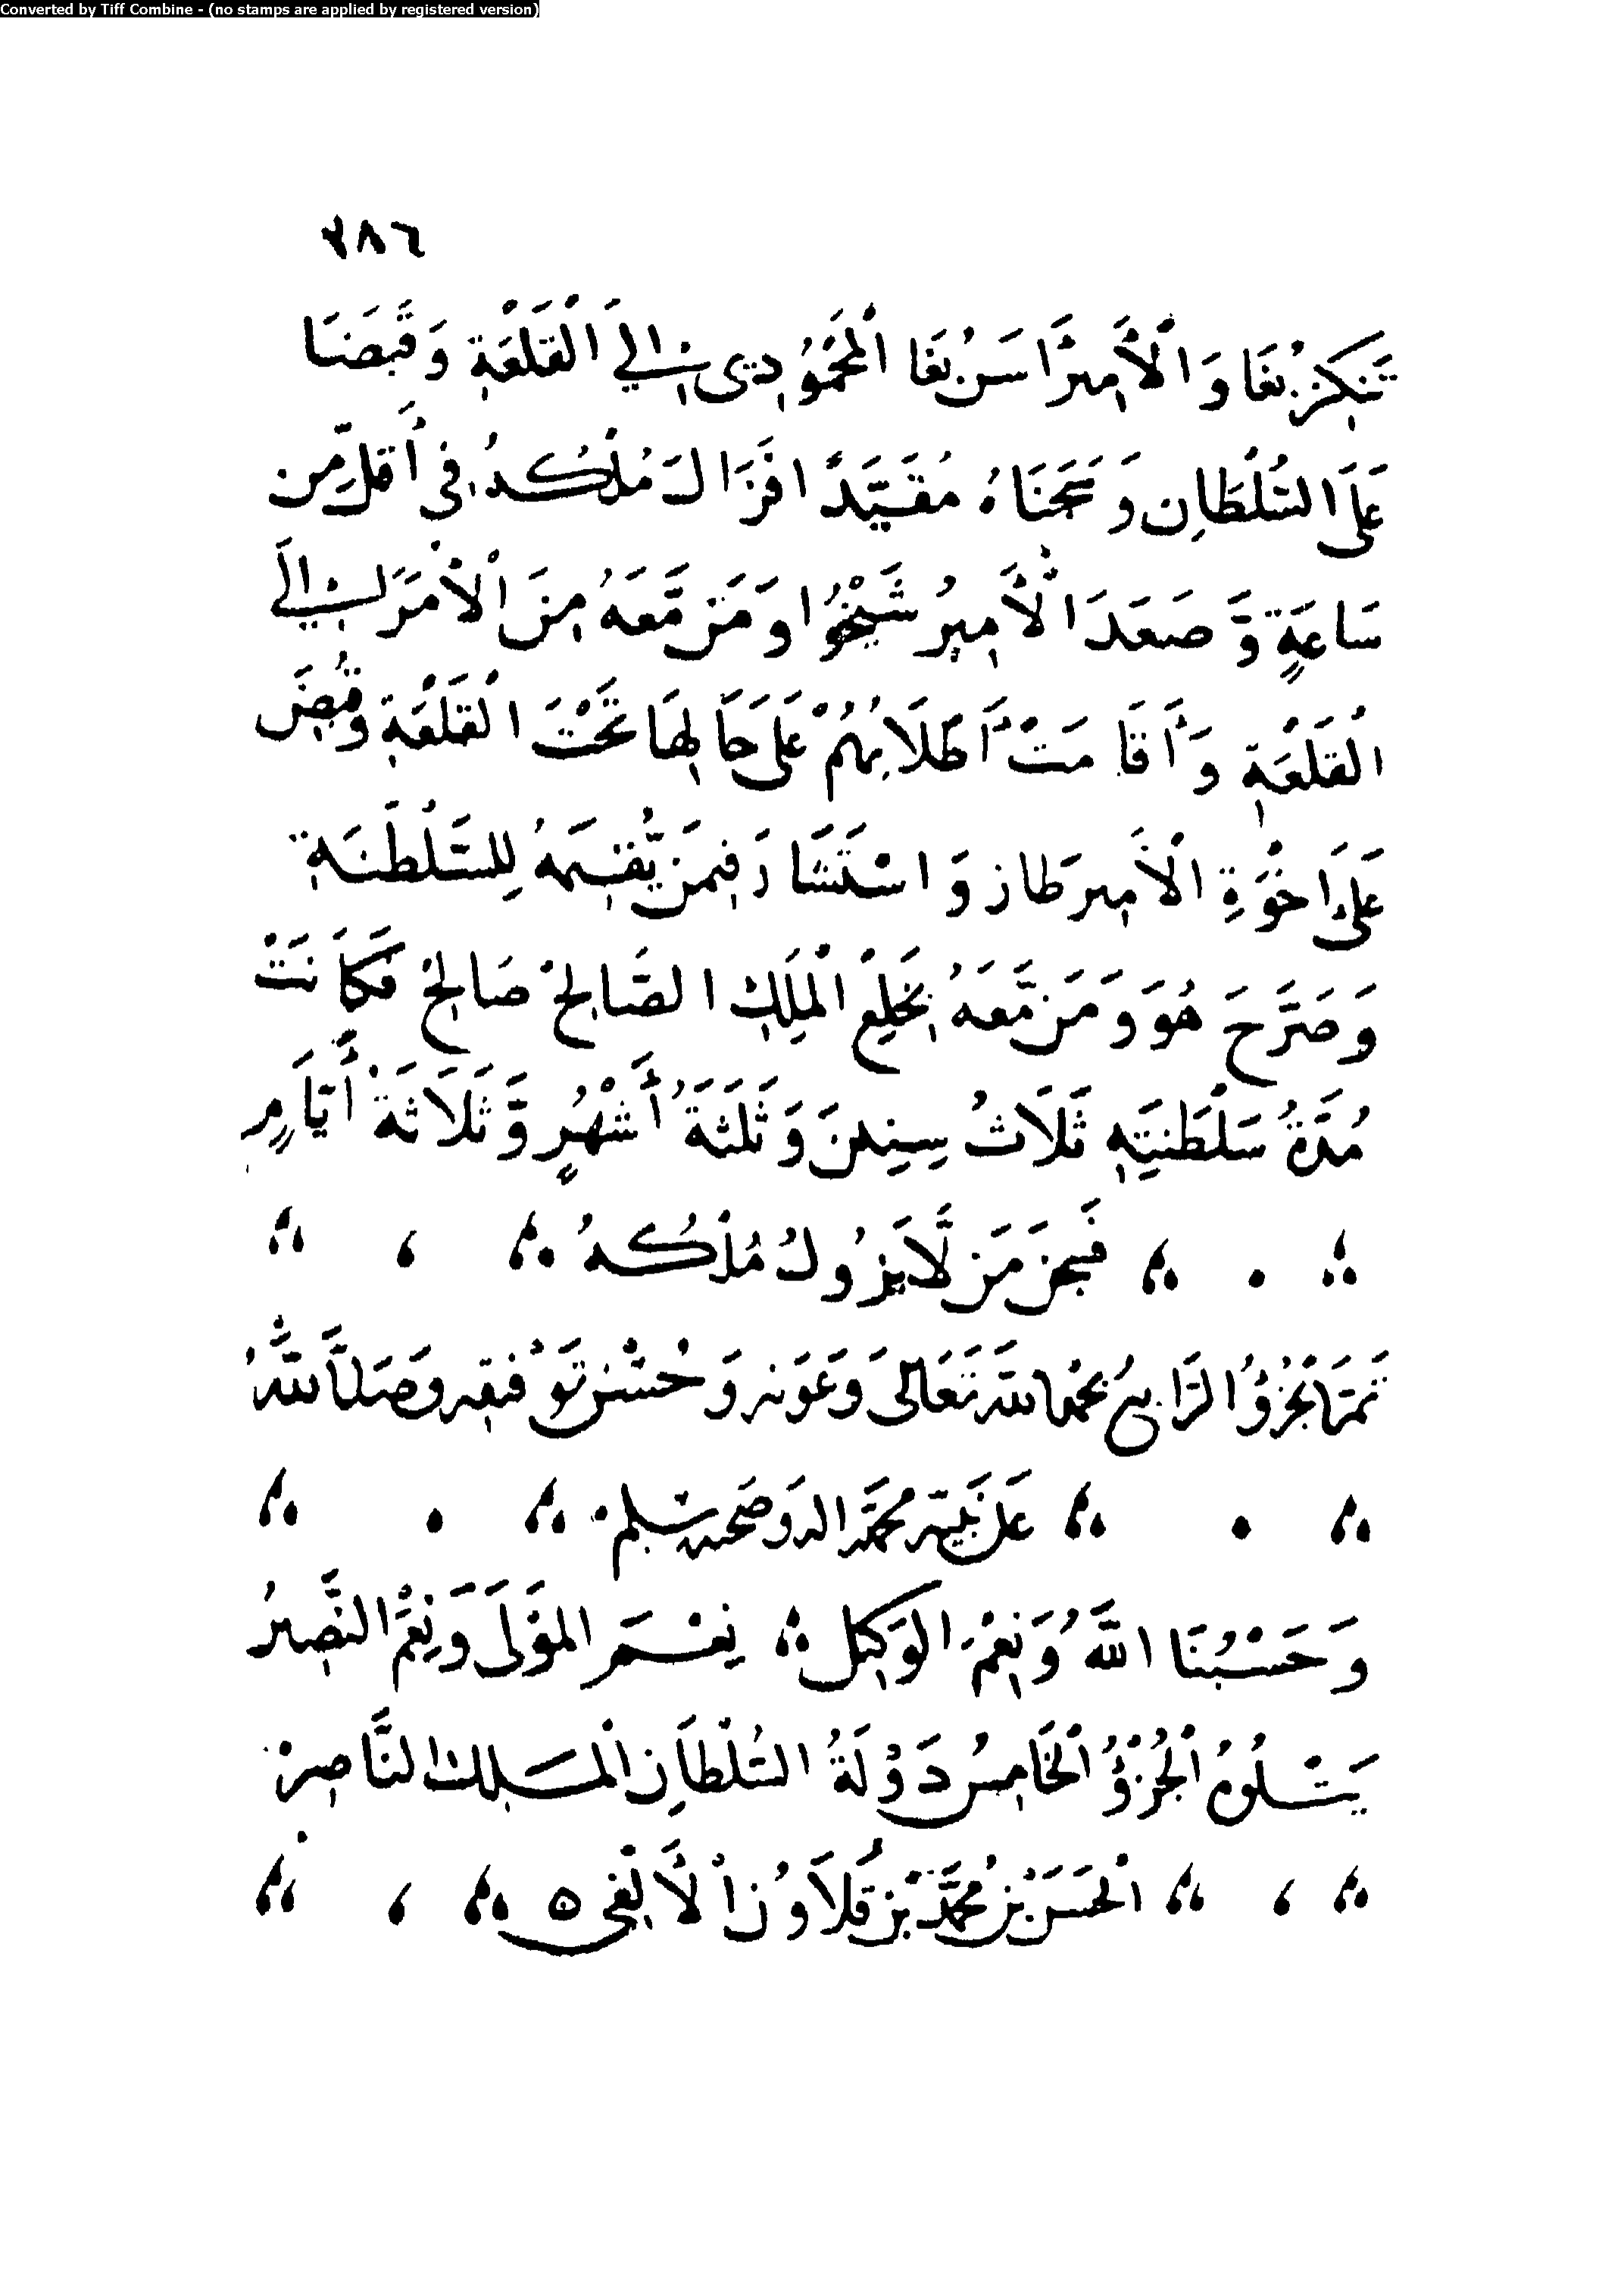 Converted by Tiff Combine - (no stamps are applied by registered version)
٢٨٦
تَنكِزْبُغَا وَالْأَمِيرْ اَسَنْبُغَا الْمَحْمُودِى إِلَي الْقَلْعَةِ وَقَبَضَا
عَلَى السُّلْطَانِ وَسَجَنَاهُ مُقَيَّدًا فَزَالَ مُلْكُهُ فِي أَقَلِّ مِن
سَاعَةٍ وَّصَعَدَ الْأَمِيرُ شَيْخُوا وَمَنْ مَّعَهُ مِنَ الْأُمَرَاءِ إِلَي
الْقَلْعَةِ وَأَقَامَتْ أَطْلَابُهُمْ عَلَى حَالِهَا تَحْتَ الْقَلْعَةِ وَقُبِضَ
عَلَى اَخْوَةِ الْأَمِير طاز وَاسْتَشَارَ فِيمَنْ يُّقِيمَهُ لِلسَّلْطَنَةِ
وَصَرَّحَ هُوَ وَمَنْ مَّعَهُ بِخَلْعِ الْمَلِكِ الصَّالِحْ صَالِحْ فَكَانَتْ
مُدَّةُ سَلْطَنَتِهِ ثَلَاثُ سِنِينَ وَثَلَثَةَ أَشْهُرٍ وَّثَلَاثَةَ أَيَّامٍ
فَسُبْحٰنَ مَنْ لَّا يَزُولُ مُلْكُهُ
تَمَّ الْجُزْؤُ الرَّابِعُ بِحَمْدِ اللهِ تَعَالَى وَعَوْنِهِ وَحُسْنِ تَوْفِيقِهِ وَصَلَّى اللهُ
عَلَى نَبِيِّهِ مُحَمَّدٍ وَآلِهِ وَصَحْبِهِ وَسَلَّمَ
وَحَسْبُنَا اللَّهُ وَنِعْمَ الْوَكِيلُ نِعْمَ الْمَوْلَى وَنِعْمَ النَّصِيرُ
يَتْلُوهُ الْجُزْؤُ الْخَامِسُ دَوْلَةُ السُّلْطَانِ الْمَلِك النَّاصِرْ
الْحَسَنْ بْنِ مُحَمَّدْ بْنِ قَلَاوُنْ الْأَلْفِي ٥